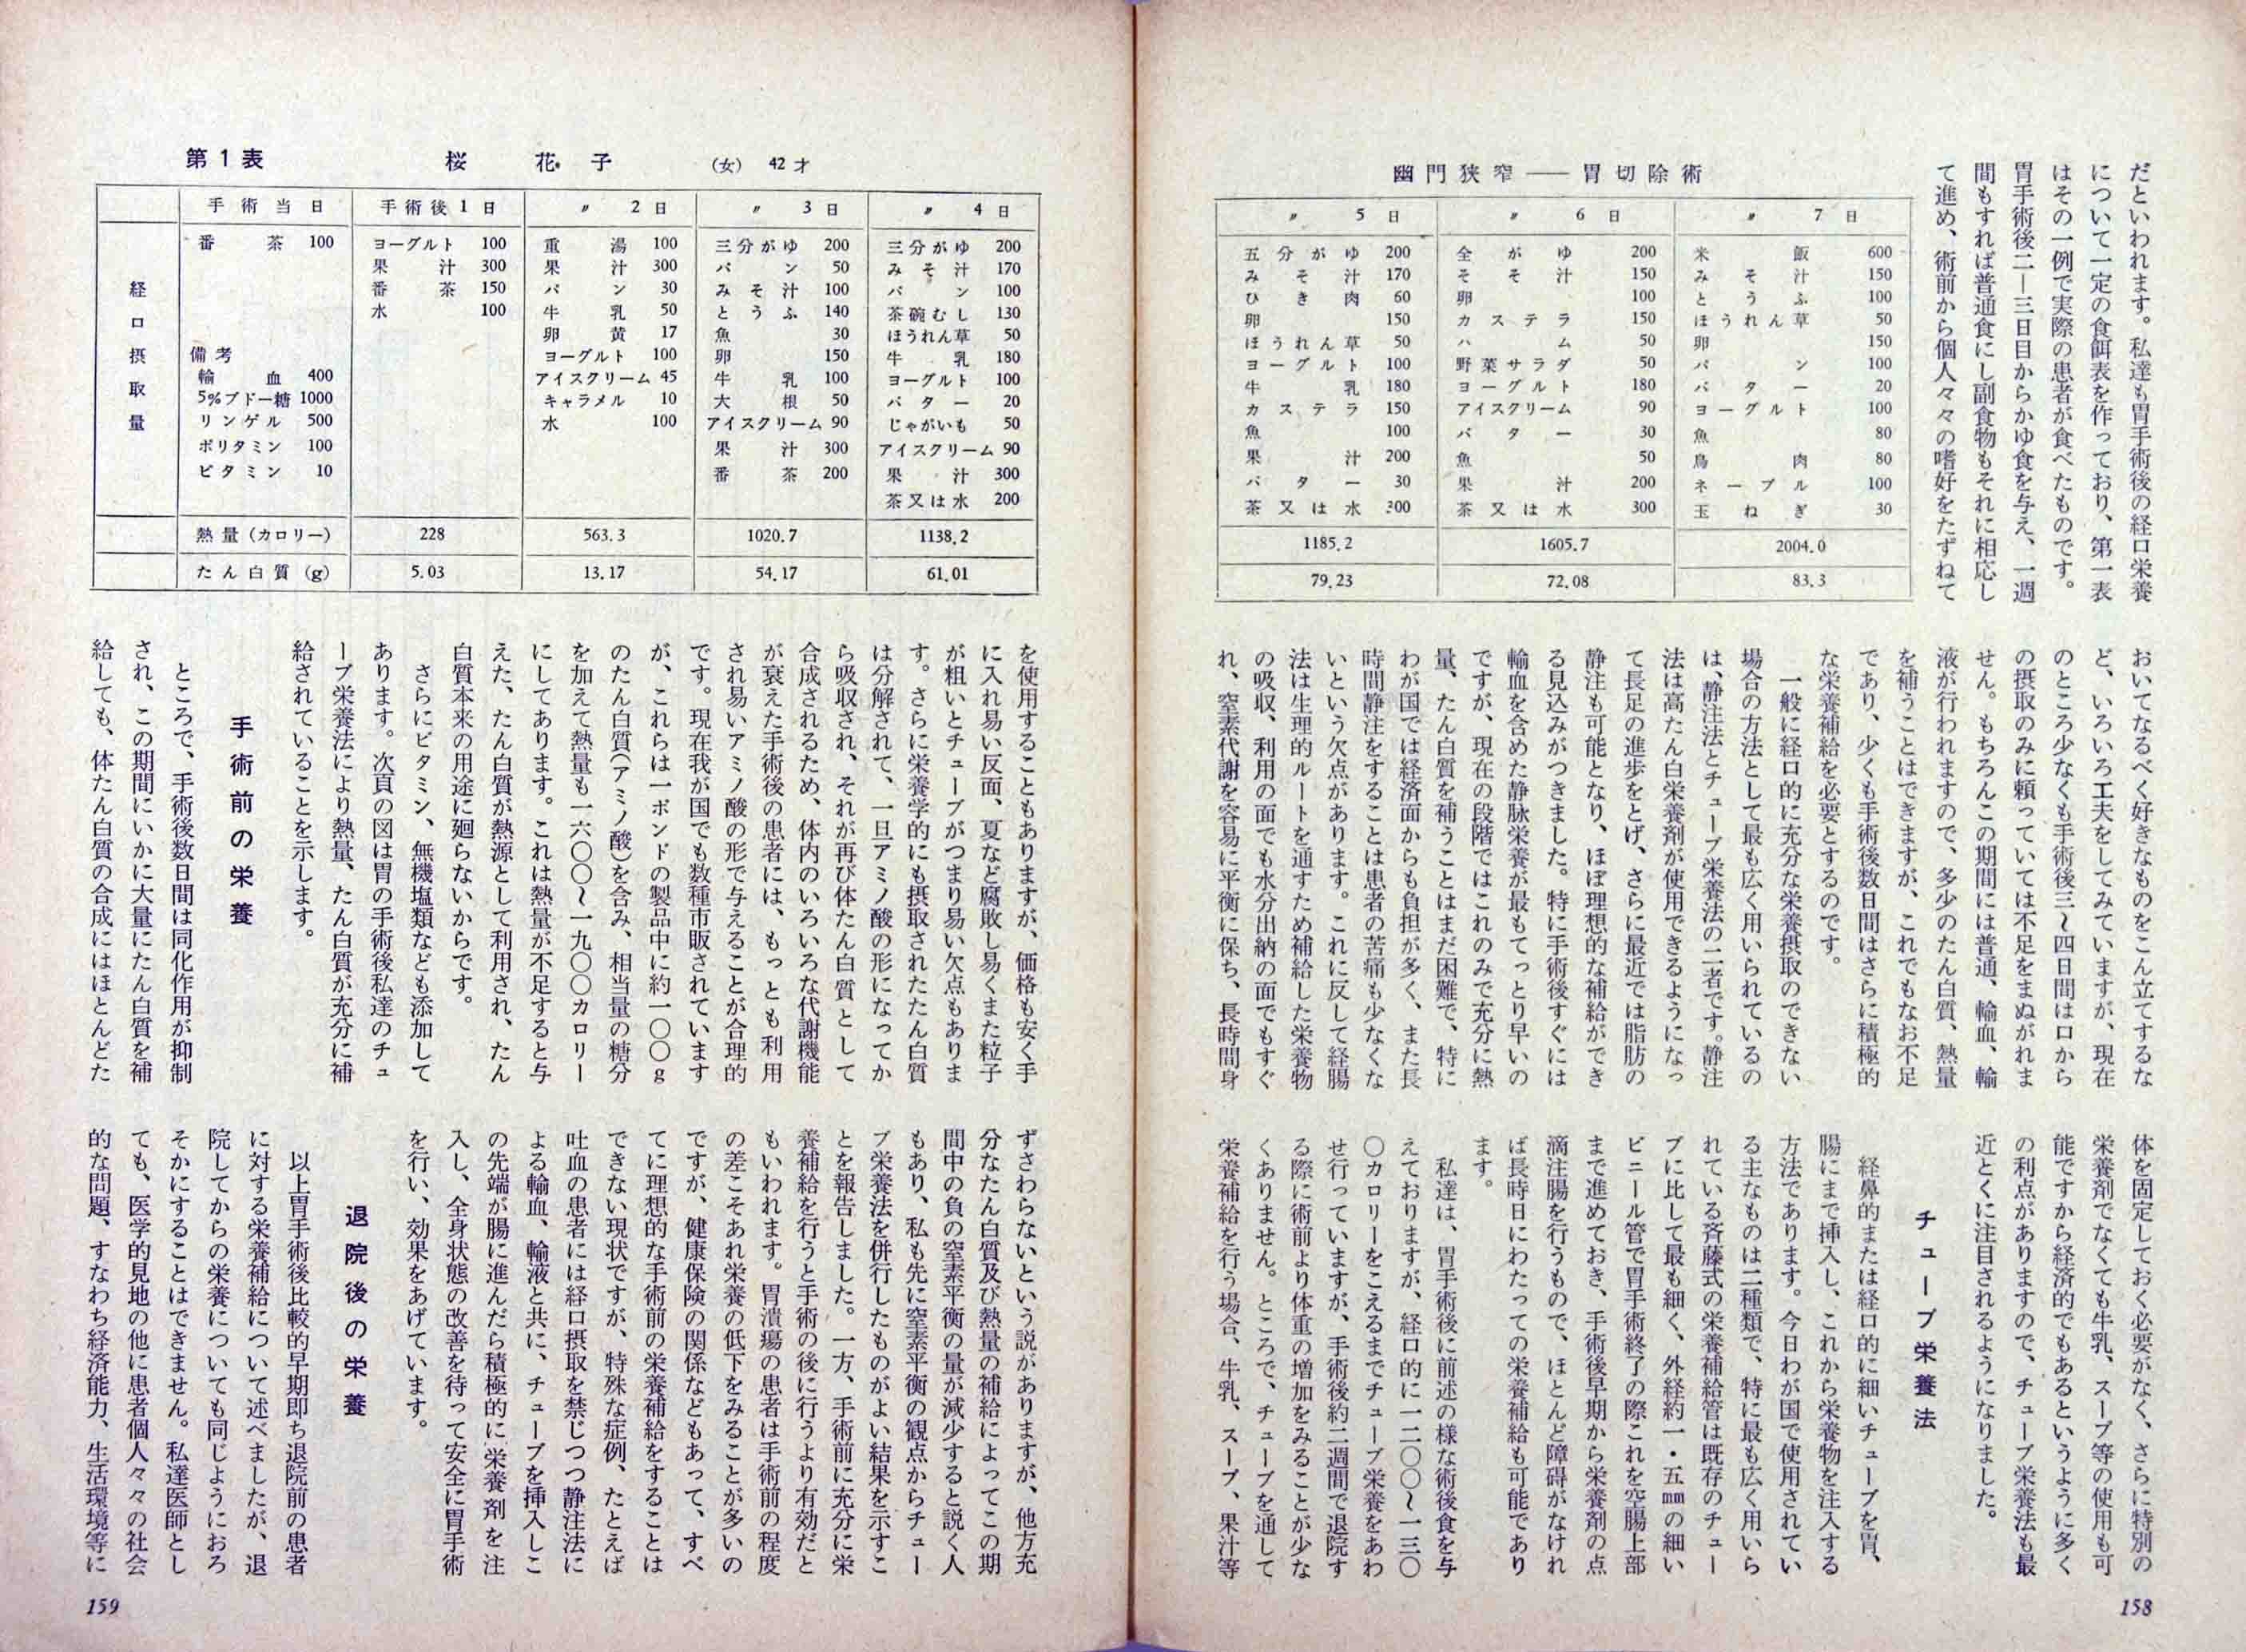 だといわれます。私達も胃手術後の経口栄養
について一定の食餌表を作っており、第一表
はその一例で実際の患者が食べたものです。
胃手術後二―三日目からかゆ食を与え、一週
間もすれば普通食にし副食物もそれに相応し
て進め、術前から個人々々の嗜好をたずねて
幽門狭窄――胃切除術
〃 5日 〃 6日 〃 7日
五分がゆ 200 全がゆ 200 米飯 600
みそ汁 170 そそ汁 150 みそ汁 150
ひき肉 60 卵 100 とうふ 100
卵 150 カステラ 150 ほうれん草 50
ほうれん草 50 ハム 50 卵 150
ヨーグルト 100 野菜サラダ 50 パン 100
牛乳 180 ヨーグルト 180 バター 20
カステラ 150 アイスクリーム 90 ヨーグルト 100
魚 100 バター 30 魚 80
果汁 200 魚 50 鳥肉 80
バター 30 果汁 200 ネーブル 100
茶又は水 300 茶又は水 300 玉ねぎ 30
1185.2 1605.7 2004.0
79.23 72.08 83.3
おいてなるべく好きなものをこん立てするな
ど、いろいろ工夫をしてみていますが、現在
のところ少なくも手術後三〜四日間は口から
の摂取のみに頼っていては不足をまぬがれま
せん。もちろんこの期間には普通、輸血、輸
液が行われますので、多少のたん白質、熱量
を補うことはできますが、これでもなお不足
であり、少くも手術後数日間はさらに積極的
な栄養補給を必要とするのです。
一般に経口的に充分な栄養摂取のできない
場合の方法として最も広く用いられているの
は、静注法とチューブ栄養法の二者です。静注
法は高たん白栄養剤が使用できるようになっ
て長足の進歩をとげ、さらに最近では脂肪の
静注も可能となり、ほぼ理想的な補給ができ
る見込みがつきました。特に手術後すぐには
輸血を含めた静脉栄養が最もてっとり早いの
ですが、現在の段階ではこれのみで充分に熱
量、たん白質を補うことはまだ困難で、特に
わが国では経済面からも負担が多く、また長
時間静注をすることは患者の苦痛も少なくな
いという欠点があります。これに反して経腸
法は生理的ルートを通すため補給した栄養物
の吸収、利用の面でも水分出納の面でもすぐ
れ、窒素代謝を容易に平衡に保ち、長時間身
体を固定しておく必要がなく、さらに特別の
栄養剤でなくても牛乳、スープ等の使用も可
能ですから経済的でもあるというように多く
の利点がありますので、チューブ栄養法も最
近とくに注目されるようになりました。
チューブ栄養法
経鼻的または経口的に細いチューブを胃、
腸にまで挿入し、これから栄養物を注入する
方法であります。今日わが国で使用されてい
る主なものは二種類で、特に最も広く用いら
れている斉藤式の栄養補給管は既存のチュー
ブに比して最も細く、外経約一・五㎜の細い
ビニール管で胃手術終了の際これを空腸上部
まで進めておき、手術後早期から栄養剤の点
滴注腸を行うもので、ほとんど障碍がなけれ
ば長時日にわたっての栄養補給も可能であり
ます。
私達は、胃手術後に前述の様な術後食を与
えておりますが、経口的に一二〇〇〜一三〇
〇カロリーをこえるまでチューブ栄養をあわ
せ行っていますが、手術後約二週間で退院す
る際に術前より体重の増加をみることが少な
くありません。ところで、チューブを通して
栄養補給を行う場合、牛乳、スープ、果汁等
158
第1表 桜花子 (女) 42才
手術当日 手術後1日 〃 2日 〃 3日 〃 4日
経口摂取量
番茶 100
備考
輸血 400
5%ブドー糖 1000
リンゲル 500
ポリタミン 100
ビタミン 10
ヨーグルト 100
果汁 300
番茶 150
水 100
重湯 100
果汁 300
パン 30
牛乳 50
卵黄 17
ヨーグルト 100
アイスクリーム 45
キャラメル 10
水 100
三分がゆ 200
パン 50
みそ汁 100
とうふ 140
魚 30
卵 150
牛乳 100
大根 50
アイスクリーム 90
果汁 300
番茶 200
三分がゆ 200
みそ汁 170
パン 100
茶碗むし 130
ほうれん草 50
牛乳 180
ヨーグルト 100
バター 20
じゃがいも 50
アイスクリーム 90
果汁 300
茶又は水 200
熱量(カロリー) 228 563.3 1020.7 1138.2
たん白質(g) 5.03 13.17 54.17 61.01
を使用することもありますが、価格も安く手
に入れ易い反面、夏など腐敗し易くまた粒子
が粗いとチューブがつまり易い欠点もありま
す。さらに栄養学的にも摂取されたたん白質
は分解されて、一旦アミノ酸の形になってか
ら吸収され、それが再び体たん白質として
合成されるため、体内のいろいろな代謝機能
が衰えた手術後の患者には、もっとも利用
され易いアミノ酸の形で与えることが合理的
です。現在我が国でも数種市販されています
が、これらは一ポンドの製品中に約一〇〇g
のたん白質(アミノ酸)を含み、相当量の糖分
を加えて熱量も一六〇〇〜一九〇〇カロリー
にしてあります。これは熱量が不足すると与
えた、たん白質が熱源として利用され、たん
白質本来の用途に廻らないからです。
さらにビタミン、無機塩類なども添加して
あります。次頁の図は胃の手術後私達のチュ
ーブ栄養法により熱量、たん白質が充分に補
給されていることを示します。
手術前の栄養
ところで、手術後数日間は同化作用が抑制
され、この期間にいかに大量にたん白質を補
給しても、体たん白質の合成にはほとんどた
ずさわらないという説がありますが、他方充
分なたん白質及び熱量の補給によってこの期
間中の負の窒素平衡の量が減少すると説く人
もあり、私も先に窒素平衡の観点からチュー
ブ栄養法を併行したものがよい結果を示すこ
とを報告しました。一方、手術前に充分に栄
養補給を行うと手術の後に行うより有効だと
もいわれます。胃潰瘍の患者は手術前の程度
の差こそあれ栄養の低下をみることが多いの
ですが、健康保険の関係などもあって、すべ
てに理想的な手術前の栄養補給をすることは
できない現状ですが、特殊な症例、たとえば
吐血の患者には経口摂取を禁じつつ静注法に
よる輸血、輸液と共に、チューブを挿入しこ
の先端が腸に進んだら積極的に栄養剤を注
入し、全身状態の改善を待って安全に胃手術
を行い、効果をあげています。
退院後の栄養
以上胃手術後比較的早期即ち退院前の患者
に対する栄養補給について述べましたが、退
院してからの栄養についても同じようにおろ
そかにすることはできません。私達医師とし
ても、医学的見地の他に患者個人々々の社会
的な問題、すなわち経済能力、生活環境等に
159